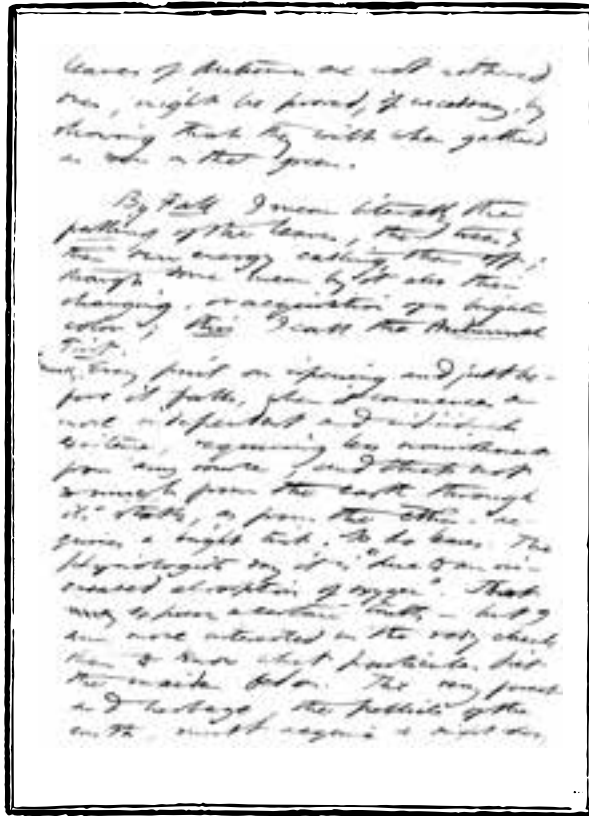 leaves of Autumn are not withered
ones, might be proved, if necessary, by
showing that they wilt when gathered
as soon as the green.
By Fall I mean literally the
falling of the leaves, the
their own energy casting them off;
though some mean by it also their
changing, or acquisition of a brighter
color; this I call the Autumnal
Tint.
fruit on ripening and just be-
fore it falls, when it commences a
more independent and individual
existence, requiring less nourishment
from any source, and that not
so much from the earth through
its stalk, as from the
quires a bright tint. So do leaves. The
physiologist says it is "due to an in-
creased absorption of oxygen". That
may a certain truth, - but I
am more interested in the rosy cheek
than to know what particular diet
the maiden fed on. The very forest
and herbage, the pellicle of the
earth, must acquire a bright